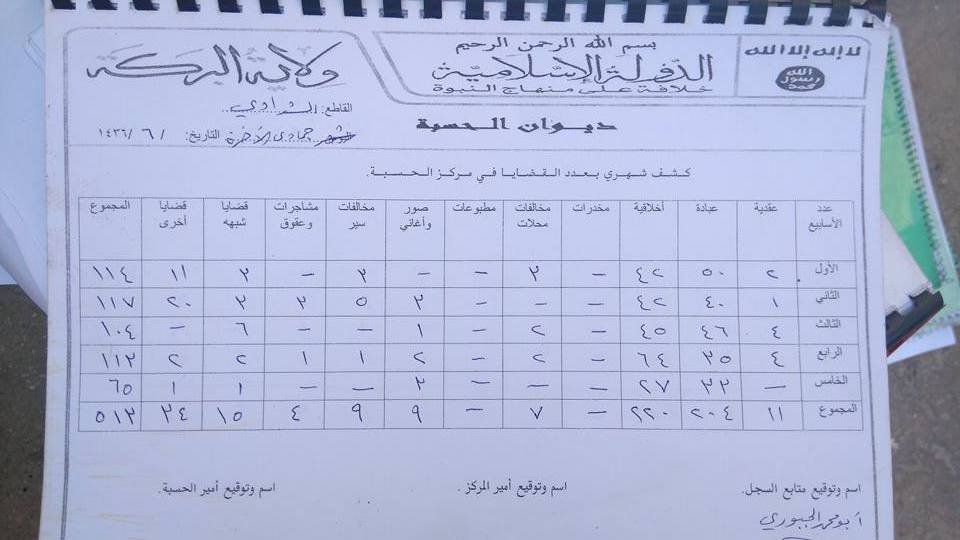 لا إله إلا الله
الله
رسول
محمد
بسم الله الرحمن الرحيم
الدولة الإسلامية
خلافة على منهاج النبوة
ولاية البركة
ديوان الحسبة
القاطع: الشدادي
التاريخ: / ٦ / ١٤٣٦ شهر جمادى الآخرة
كشف شهري بعدد القضايا في مركز الحسبة.
عدد الأسابيع عقدية عبادة أخلاقية مخدرات مخالفات محلات مطبوعات صور وأغاني مخالفات سير مشاجرات وعقوق قضايا شبهه قضايا أخرى المجموع
الأول ٢ ٥٠ ٤٢ – ٣ – – ٣ – ٣ ١١ ١١٤
الثاني ١ ٤٠ ٤٢ – – – ٣ ٥ ٣ ٣ ٢٠ ١١٧
الثالث ٤ ٤٦ ٤٥ – ٢ – ١ – – ٦ – ١٠٤
الرابع ٤ ٣٥ ٦٤ – ٢ – ٢ ١ ١ ٢ ٢ ١١٣
الخامس – ٣٣ ٢٧ – – – ٣ – – ١ ١ ٦٥
المجموع ١١ ٢٠٤ ٢٢٠ – ٧ – ٩ ٩ ٤ ١٥ ٣٤ ٥١٣
اسم وتوقيع متابع السجل. اسم وتوقيع أمير المركز . اسم وتوقيع أمير الحسبة.
أبو محمد الجبوري